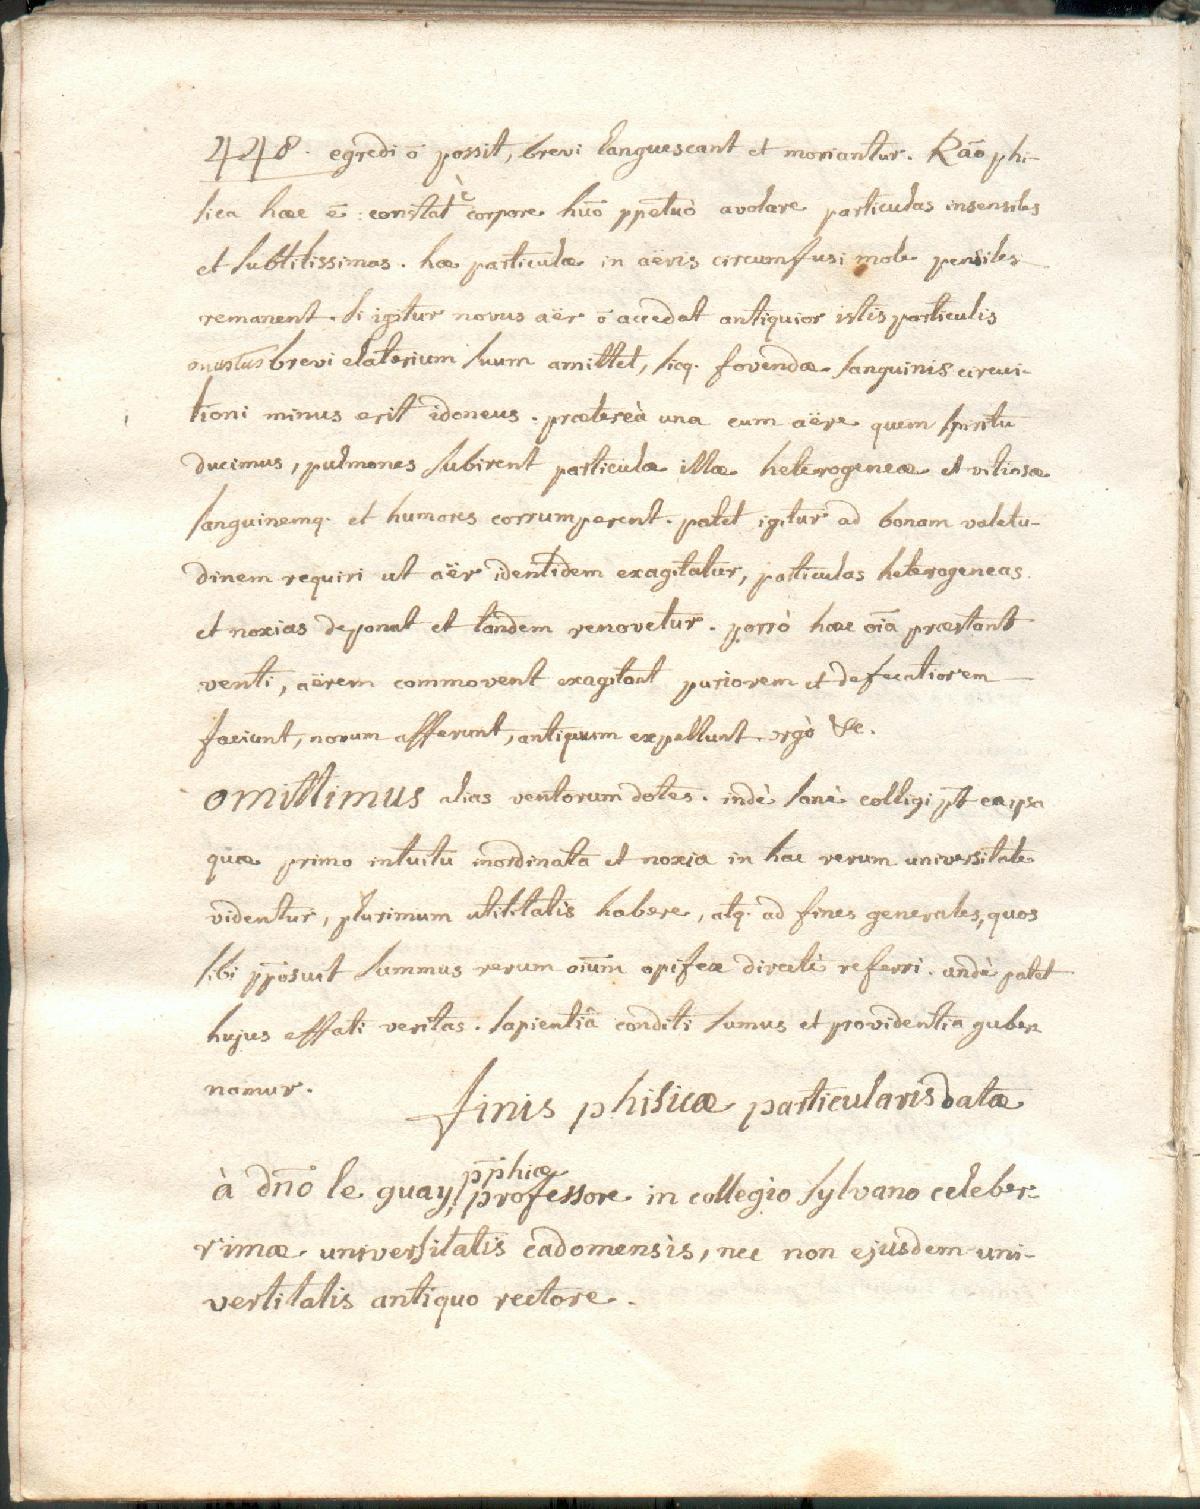 448. egredi o̅ possit, brevi languescant et moriantur. Rāo phi-
sica hæc ē: constat è corpore hūo ppetuò avolare particulas insensiles
et subtilissimas. hæ particulæ in aëris circumfusi mole pensiles
remanent. si igitur novus aër o̅ accedat antiquior istis particulis
onustus brevi elaterium suum amittet, sicq. fovendæ sanguinis circui-
tioni minus erit idoneus. prætereà una cum aëre quem spiritu
ducimus, pulmones subirent particulæ illæ heterogeneæ et vitiosæ
sanguinemq. et humores corrumperent. patet igitur ad bonam valetu-
dinem requiri ut aër identidem exagitatur, particulas heterogeneas
et noxias deponat et tandem renovetur. porrò hæc oīa præstant
venti, aërem commovent exagitant puriorem et defecatiorem
faciunt, novum afferunt, antiquum expellunt. ergò &c.
omittimus alias ventorum dotes. indè sanè colligi p̄t ea ipsa
quæ primo intuitu inordinata et noxia in hac rerum universitate
videntur, plurimum utilitatis habere, atq. ad fines generales, quos
sibi pp̄osuit summus rerum oīum opifex directè referri. undè patet
hujus effati veritas. sapientiâ conditi sumus et providentia guber
namur.
finis phisicæ particularis datæ
à dn̄o le guay, pp̄hiæ professore in collegio sylvano celeber-
rimæ universitatis cadomensis, nec non ejusdem uni-
versitatis antiquo rectore.